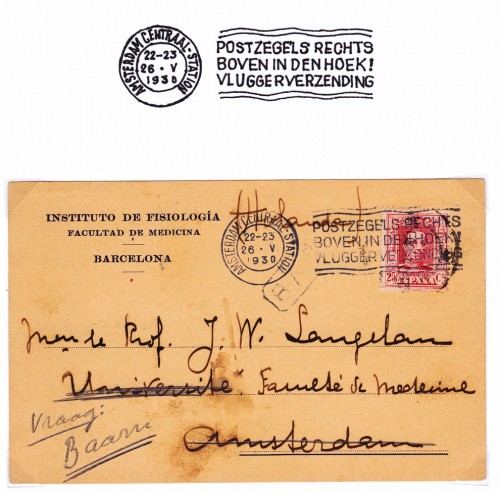 AMSTERDAM CENTRAAL-STATION
22-23
26·V
1930
POSTZEGELS RECHTS
BOVEN IN DEN HOEK!
VLUGGER VERZENDING
INSTITUTO DE FISIOLOGÍA
FACULTAD DE MEDICINA
BARCELONA
Holanda
AMSTERDAM CENTRAAL-STATION
1
22-23
26·V
1930
POSTZEGELS RECHTS
BOVEN IN DEN HOEK!
VLUGGER VERZENDING
Prof. J. W. Langelaan
Université Faculté de Medecine
Amsterdam
Vraag:
Baarn